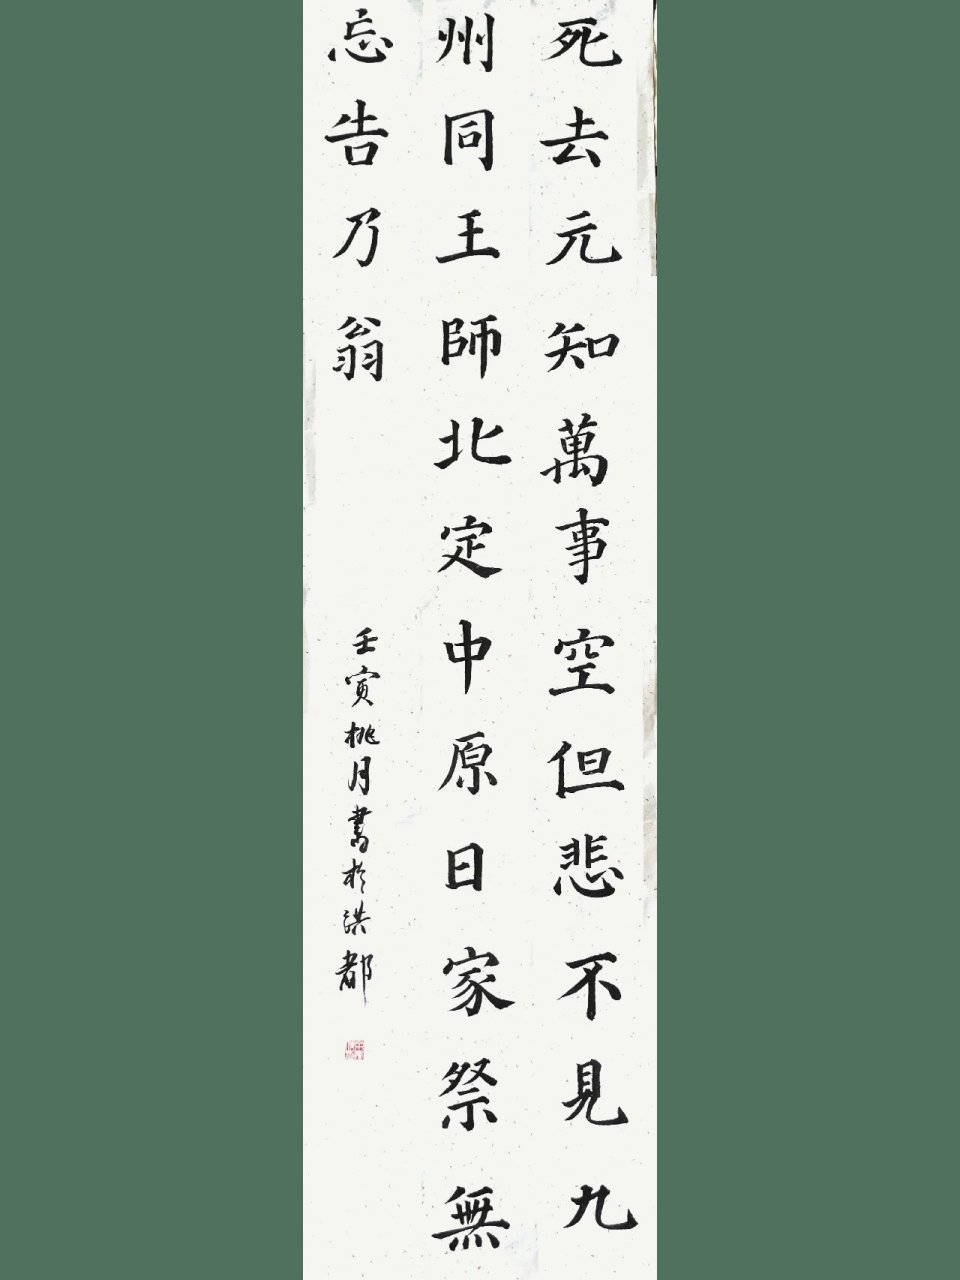 死去元知萬事空但悲不見九
州同王師北定中原日家祭無
忘告乃翁
壬寅桃月書於洪都